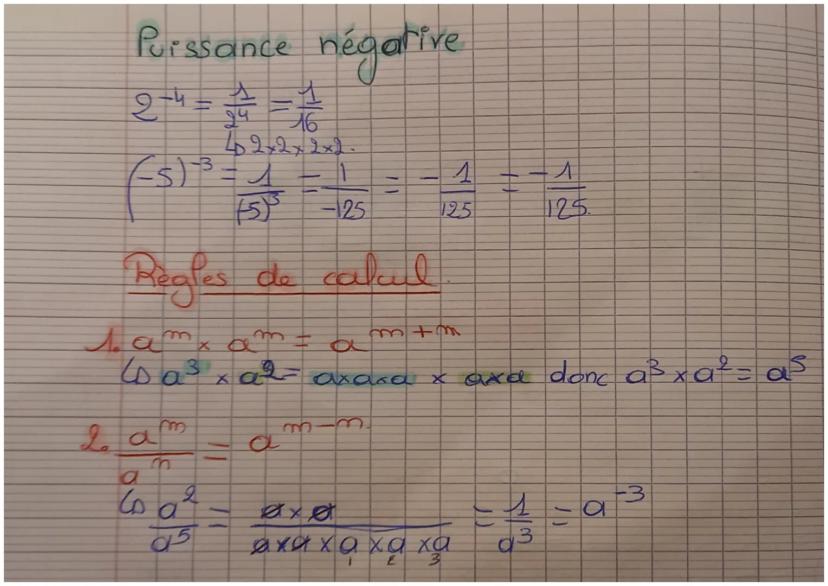 Puissance négative
2⁻⁴ = 1/2⁴ = 1/16
↳ 2×2×2×2.
(-5)⁻³ = 1/(-5)³ = 1/-125 = - 1/125 = -1/125.
Règles de calcul.
1. aᵐ × aᵐ = aᵐ⁺ᵐ
↳ a³ × a² = a×a×a × a×a donc a³ × a² = a⁵
2. aᵐ/aⁿ = aᵐ⁻ⁿ
↳ a²/a⁵ = a×a/a×a×a×a×a = 1/a³ = a⁻³
1 2 3